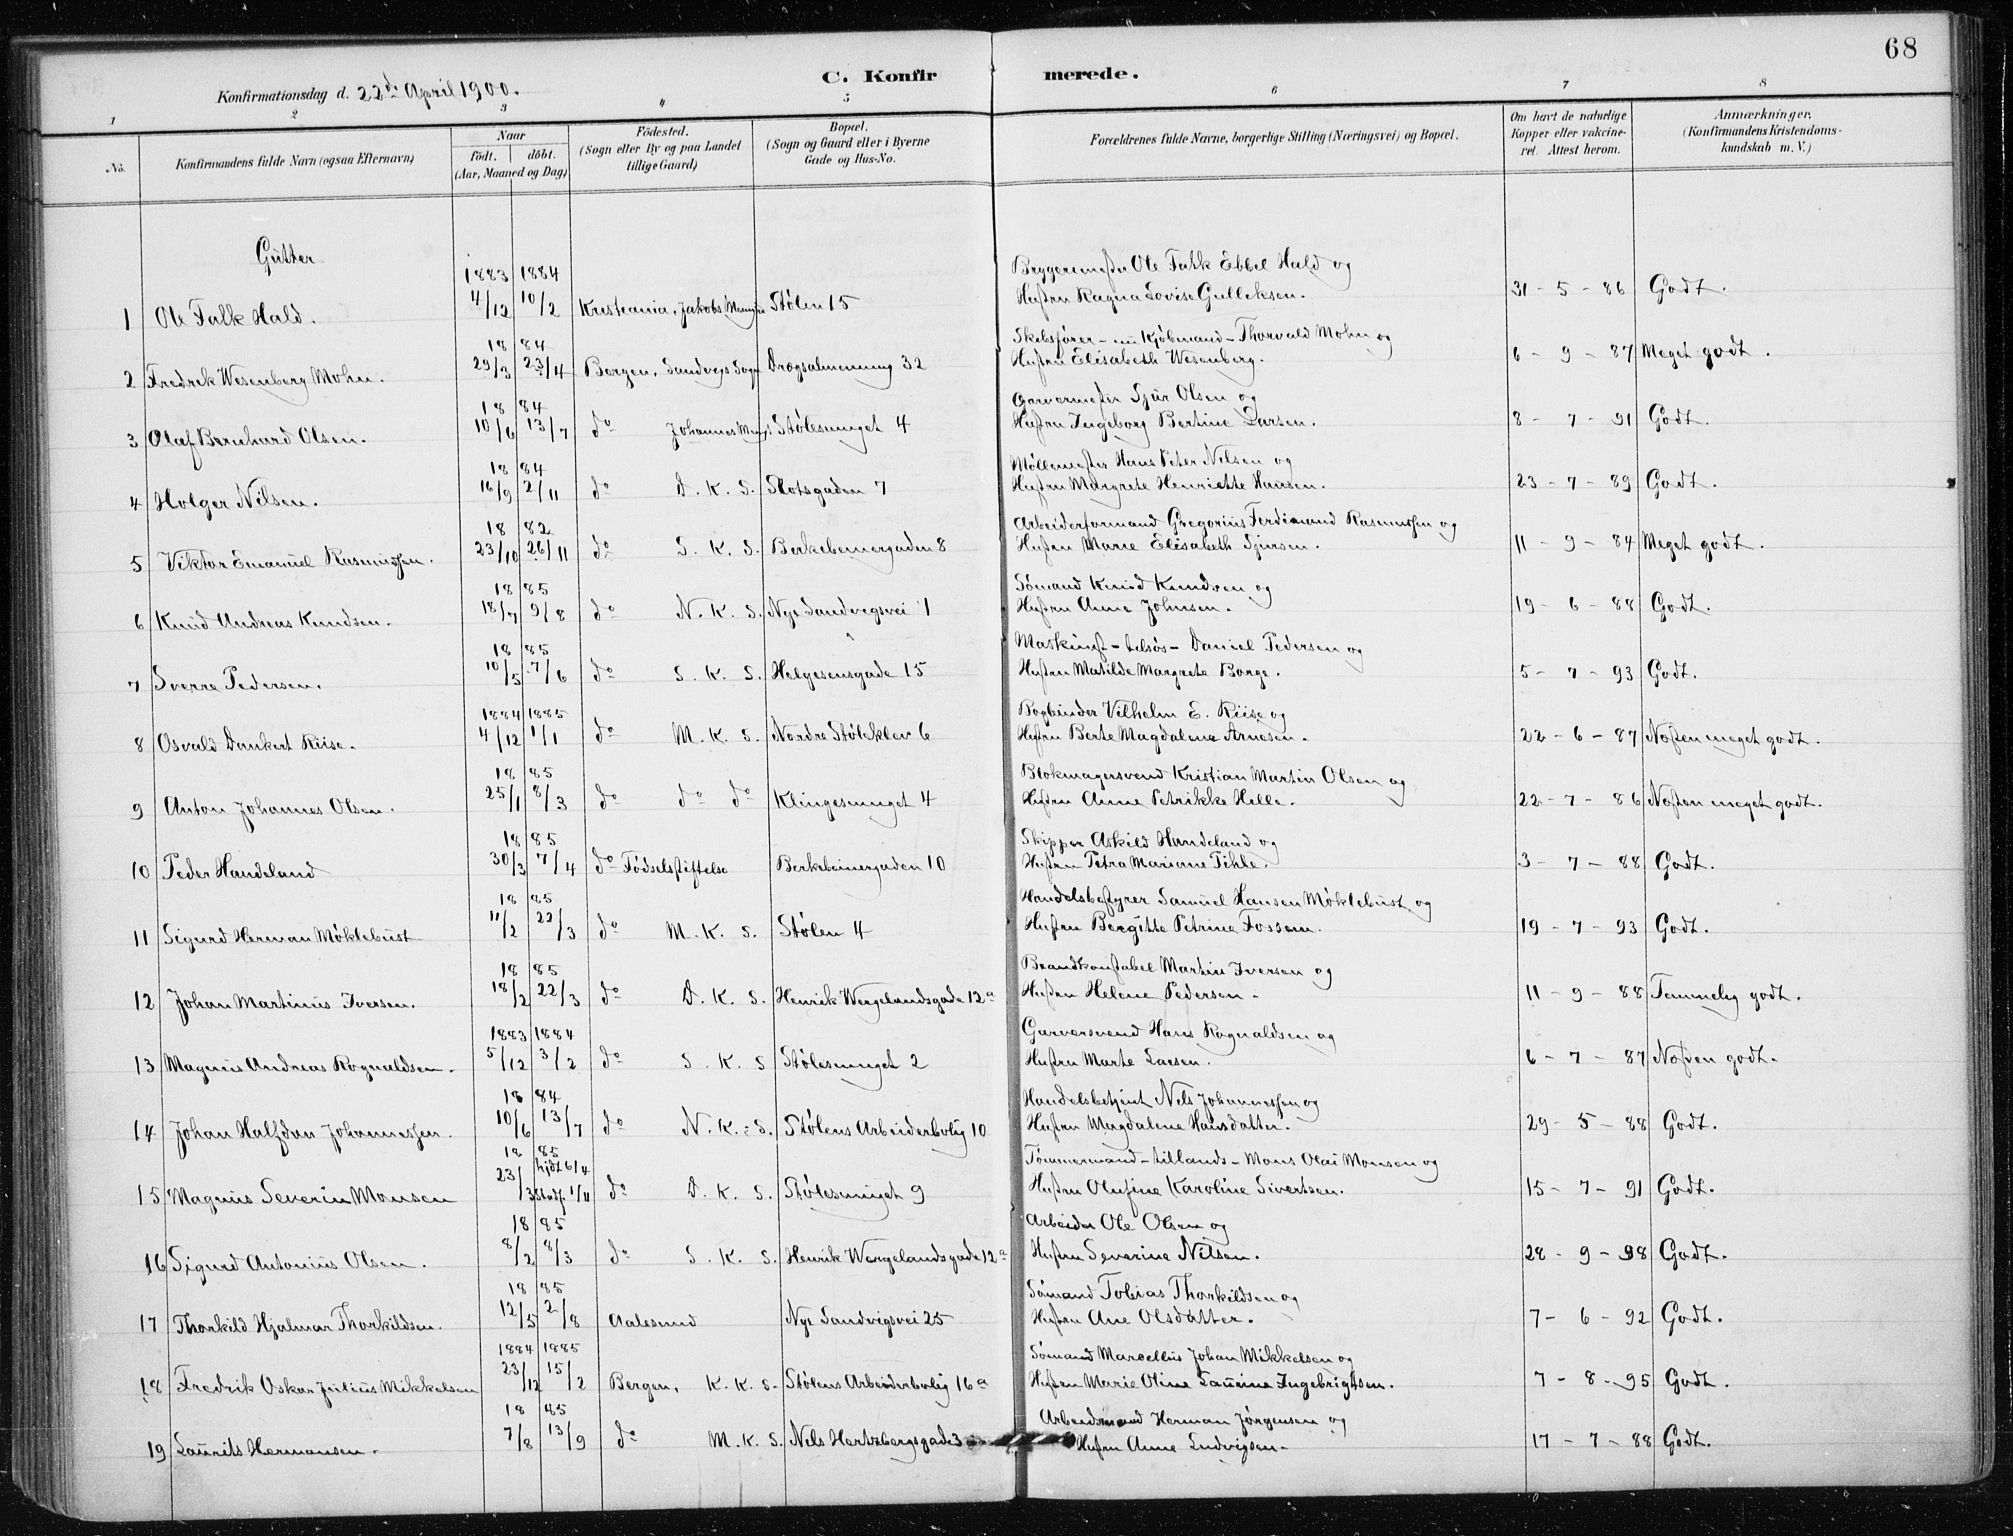 68
C. Konfirmerede.
Konfirmationsdag d. 22d. April 1900.
1 2 3 4 5 6 7 8
No. Konfirmandens fulde Navn (ogsaa Efternavn) Naar födt. döbt. (Aar, Maaned og Dag) Födested. (Sogn eller By og paa Landet tillige Gaard) Bopæl. (Sogn og Gaard eller i Byerne Gade og Hus-No. Forældrenes fulde Navne, borgerlige Stilling (Næringsvei) og Bopæl. Om havt de naturlige Kopper eller vakcineret. Attest herom. Anmærkninger. (Konfirmandens Kristendomskundskab m. V.)
Gutter
1883 1884 Bryggermester Ole Falk Ebbel Hald og
1 Ole Falk Hald. 4/12 10/2 Kristiania, Jakobs Stølen 15 Hustru Ragna Lovise Gulliksen. 31-5-86 Godt.
18 84 Skibsfører - nu Kjøbmand - Thorvald Mohn og
2 Fredrik Wesenberg Mohn. 29/3 23/4 Bergen, Sandvigs Sogn Dragsalmenning 32 Hustru Elisabeth Wesenberg. 6-9-87 Meget godt.
18 84 Garvermester Sjur Olsen og
3 Olaf Bernhard Olsen. 10/6 13/7 do Johannes Stølesmuget 4 Hustru Ingeborg Bertine Larsen. 8-7-91 Godt.
18 84 Møllemester Hans Peter Nilsen og
4 Holger Nilsen. 16/9 2/11 do D. K. S. Slotsgaden 7 Hustru Margrete Henriette Hansen. 23-7-89 Godt.
18 82 Arbeiderformand Gregorius Ferdinand Rasmussen og
5 Viktor Emanuel Rasmussen. 23/10 26/11 do S. K. S. Berkebeinergaden 8 Hustru Marie Elisabeth Sjursen. 11-9-84 Meget godt.
18 85 Sømand Knud Knudsen og
6 Knud Andreas Knudsen. 18/7 9/8 do N. K. S. Nye Sandvigsvei 1 Hustru Anne Johnsen. 19-6-88 Godt.
18 85 Maskinist - tilsøs - Daniel Pedersen og
7 Sverre Pedersen. 10/5 7/6 do S. K. S. Helgesensgade 15 Hustru Matilde Margrete Borge. 5-7-93 Godt.
1884 1885 Bogbinder Vilhelm E. Riise og
8 Osvald Dankert Riise. 4/12 1/1 do M. K. S. Nordre Støleklev 6 Hustru Berte Magdalene Arnesen. 22-6-87 Næsten meget godt.
18 85 Blokmagersvend Kristian Martin Olsen og
9 Anton Johannes Olsen. 25/1 8/3 do do do Klingesmuget 4 Hustru Anne Petrikke Helle. 22-7-86 Næsten meget godt.
18 85 Skipper Askild Handeland og
10 Peder Handeland 30/3 7/4 do Fødselsstiftelse Berkebeinergaden 10 Hustru Petra Mariane Pihle. 3-7-88 Godt.
18 85 Handelsbestyrer Samuel Hansen Møklebust og
11 Sigurd Herman Møklebust 11/2 22/3 do M. K. S. Stølen 4 Hustru Bergitte Petrine Fossem. 19-7-93 Godt.
18 85 Brandkonstabel Martin Iversen og
12 Johan Martinus Iversen. 18/2 22/3 do D. K. S. Henrik Wergelandsgade 12a Hustru Helene Pedersen. 11-9-88 Temmelig godt.
1883 1884 Garversvend Hans Rognaldsen og
13 Magnus Andreas Rognaldsen. 5/12 3/2 do S. K. S Stølesmuget 2 Hustru Marte Larsen. 6-7-87 Næsten godt.
18 84 Handelsbetjent Nels Johannessen og
14 Johan Halfdan Johannessen. 10/6 13/7 do N. K. S. Stølens Arbeiderbolig 10 Hustru Magdalene Hansdatter. 29-5-88 Godt.
18 85 Tømmermand - tillands - Mons Olai Monsen og
15 Magnus Severin Monsen 23/3 hjdt 6/4 do D. K. S. Stølesmuget 9 Hustru Olufine Karoline Sivertsen. 15-7-91 Godt.
18 85 Arbeider Ole Olsen og
16 Sigurd Antonius Olsen. 8/2 8/3 do S. K. S. Henrik Wergelandsgade 12a Hustru Severine Nilsen. 28-9-98 Godt.
18 85 Sømand Tobias Thorkildsen og
17 Thorkild Hjalmar Thorkildsen. 12/5 2/8 Aalesund Nye Sandvigsvei 25 Hustru Ane Olsdatter. 7-6-92 Godt.
1884 1885 Sømand Marcellius Johan Mikkelsen og
18 Fredrik Oskar Julius Mikkelsen 23/12 15/2 Bergen, K. K. S. Stølens Arbeiderbolig 16a Hustru Marie Oline Laurine Ingebrigtsen. 7-8-95 Godt.
18 85 Arbeidsmand Herman Jørgensen og
19 Laurits Hermansen. 7/8 13/9 do M. K. S. Nils Hertzbergsgade 3 Hustru Anne Ludvigsen. 17-7-88 Godt.